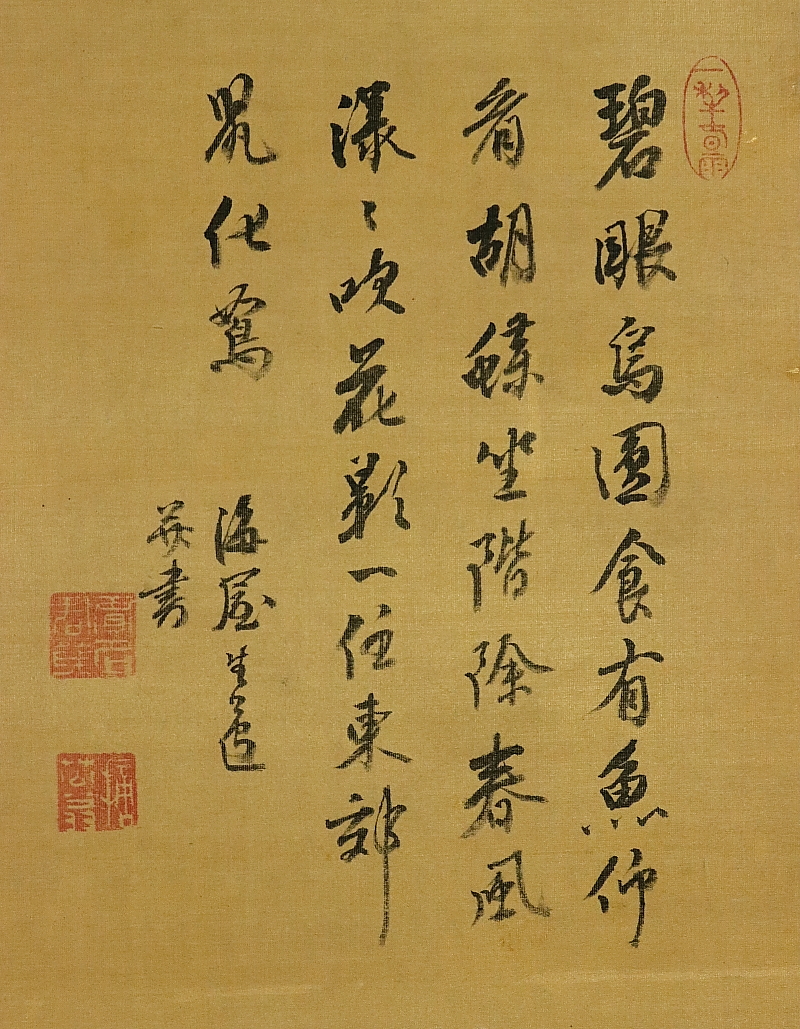 一犂春雨
碧眼烏圓食有魚仰
看胡蝶坐階除春風
漾〻吹花影一任東郊
鼠化鴽
海屋生
并書